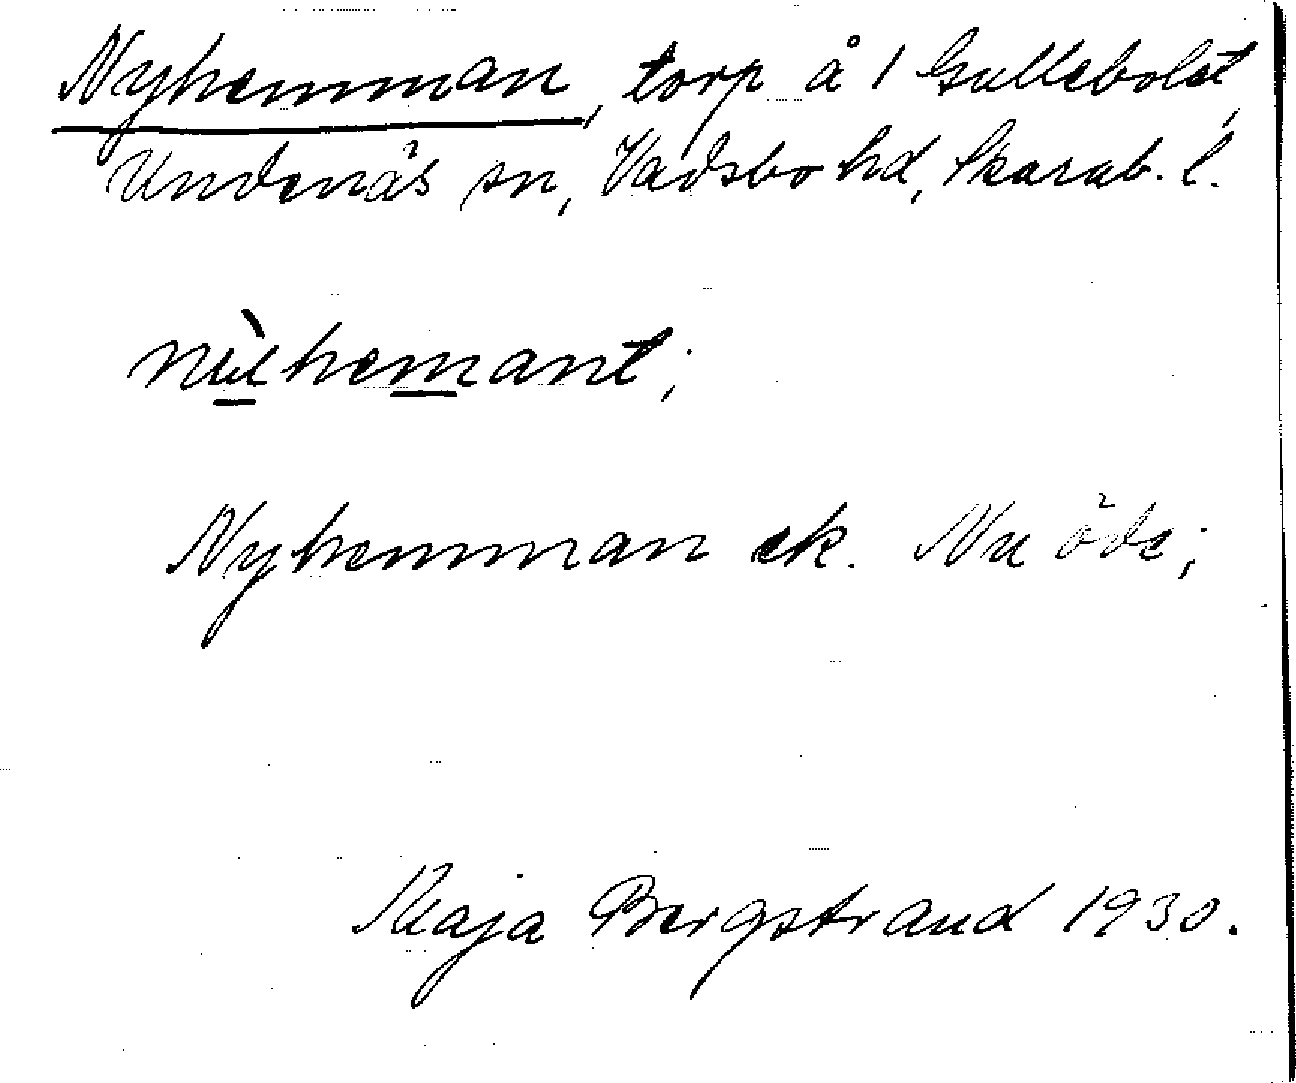 Nyhemman, torp å 1 Gullebolet,
Undenäs sn, Vadsbo hd, Skarab. l.
hemant;
Nyhemman ek. Nu öde;
Maja Bergstrand 1930.